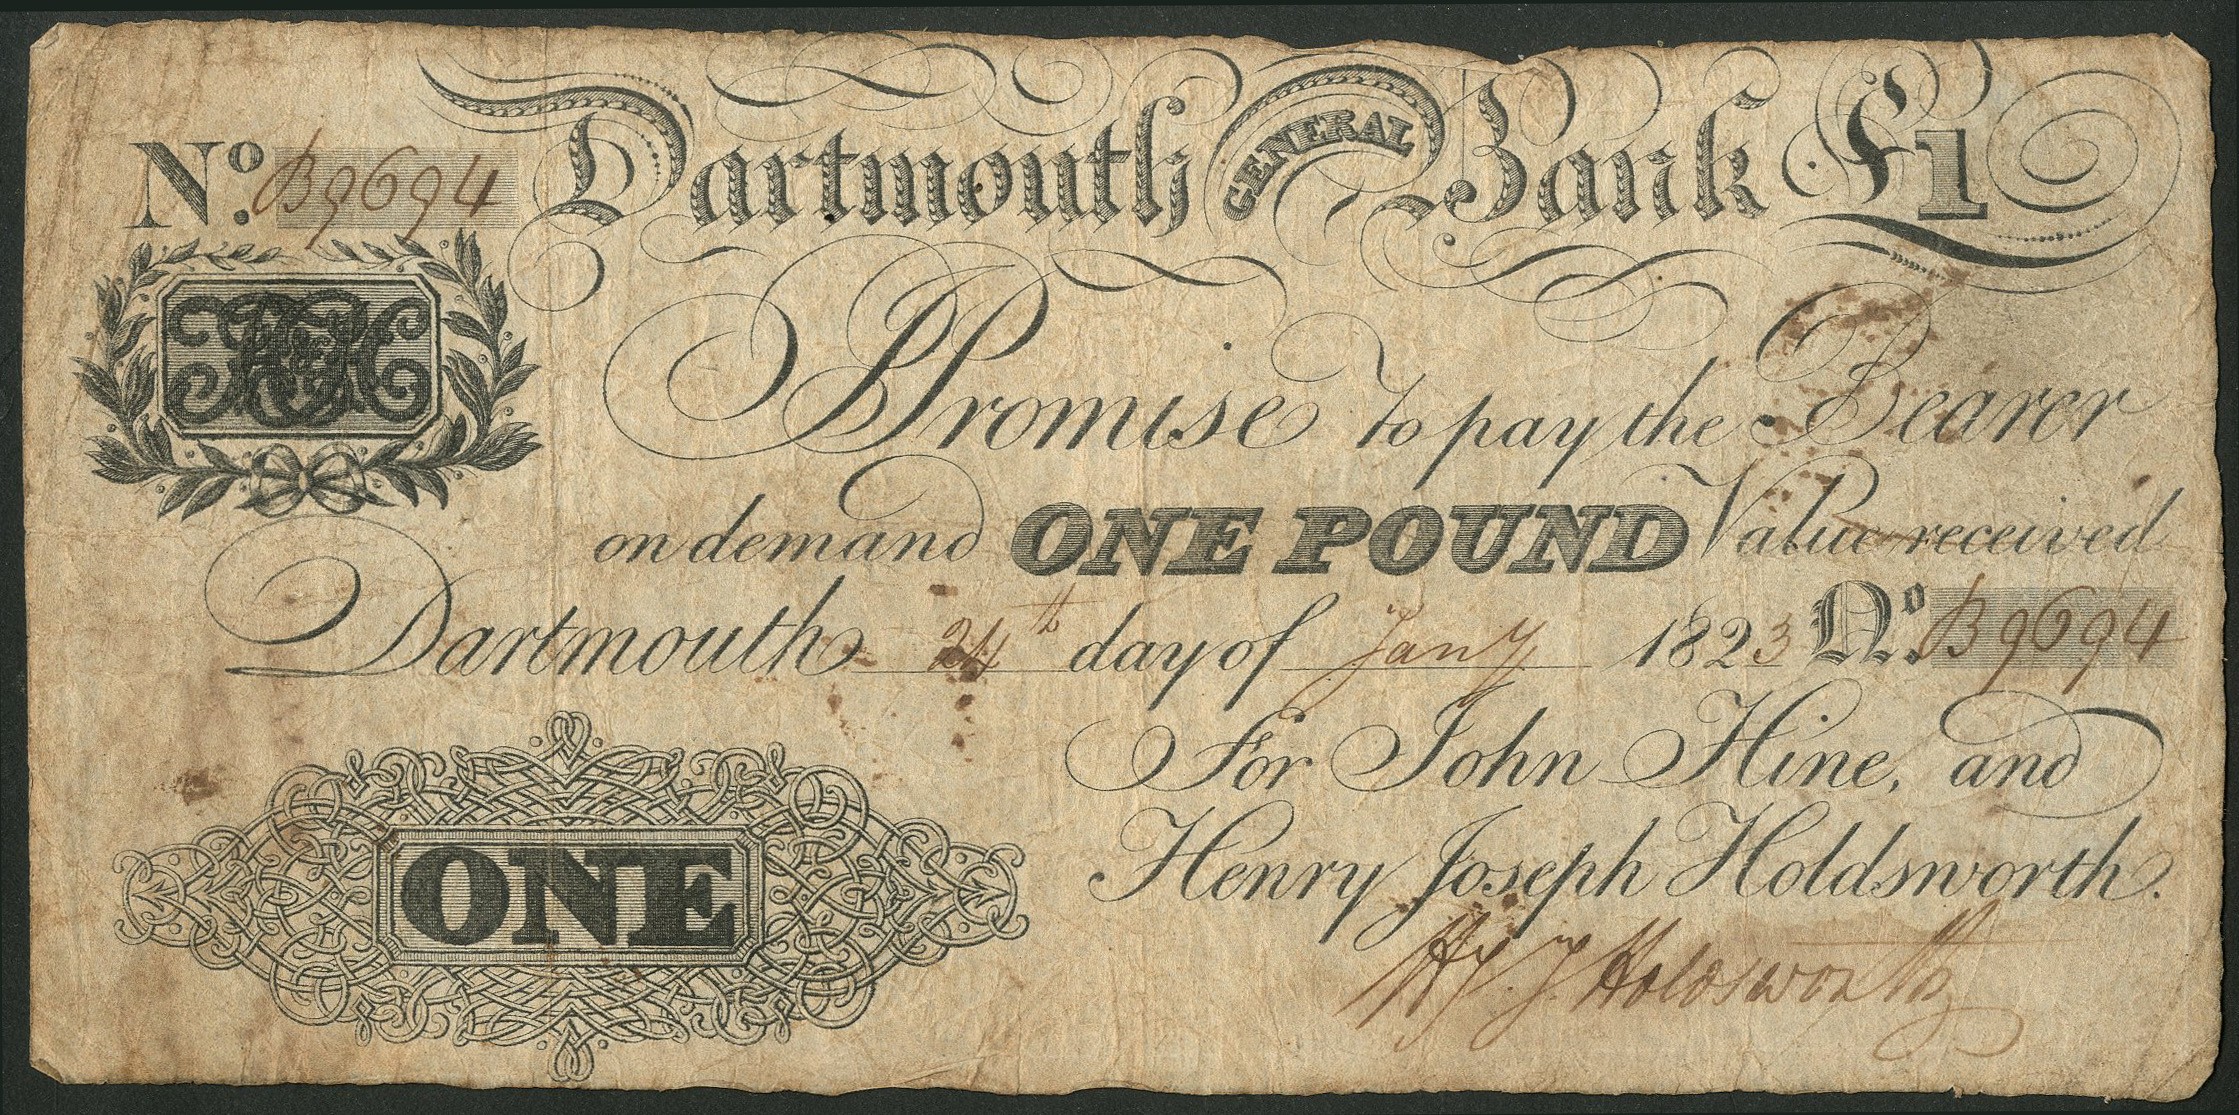 Dartmouth GENERAL Bank £1
No. B9694
I Promise to pay the Bearer
on demand ONE POUND Value received
Dartmouth 24th day of Jany 1823 No. B9694
For John Hine, and
Henry Joseph Holdsworth.
ONE
Hy. J. Holdsworth